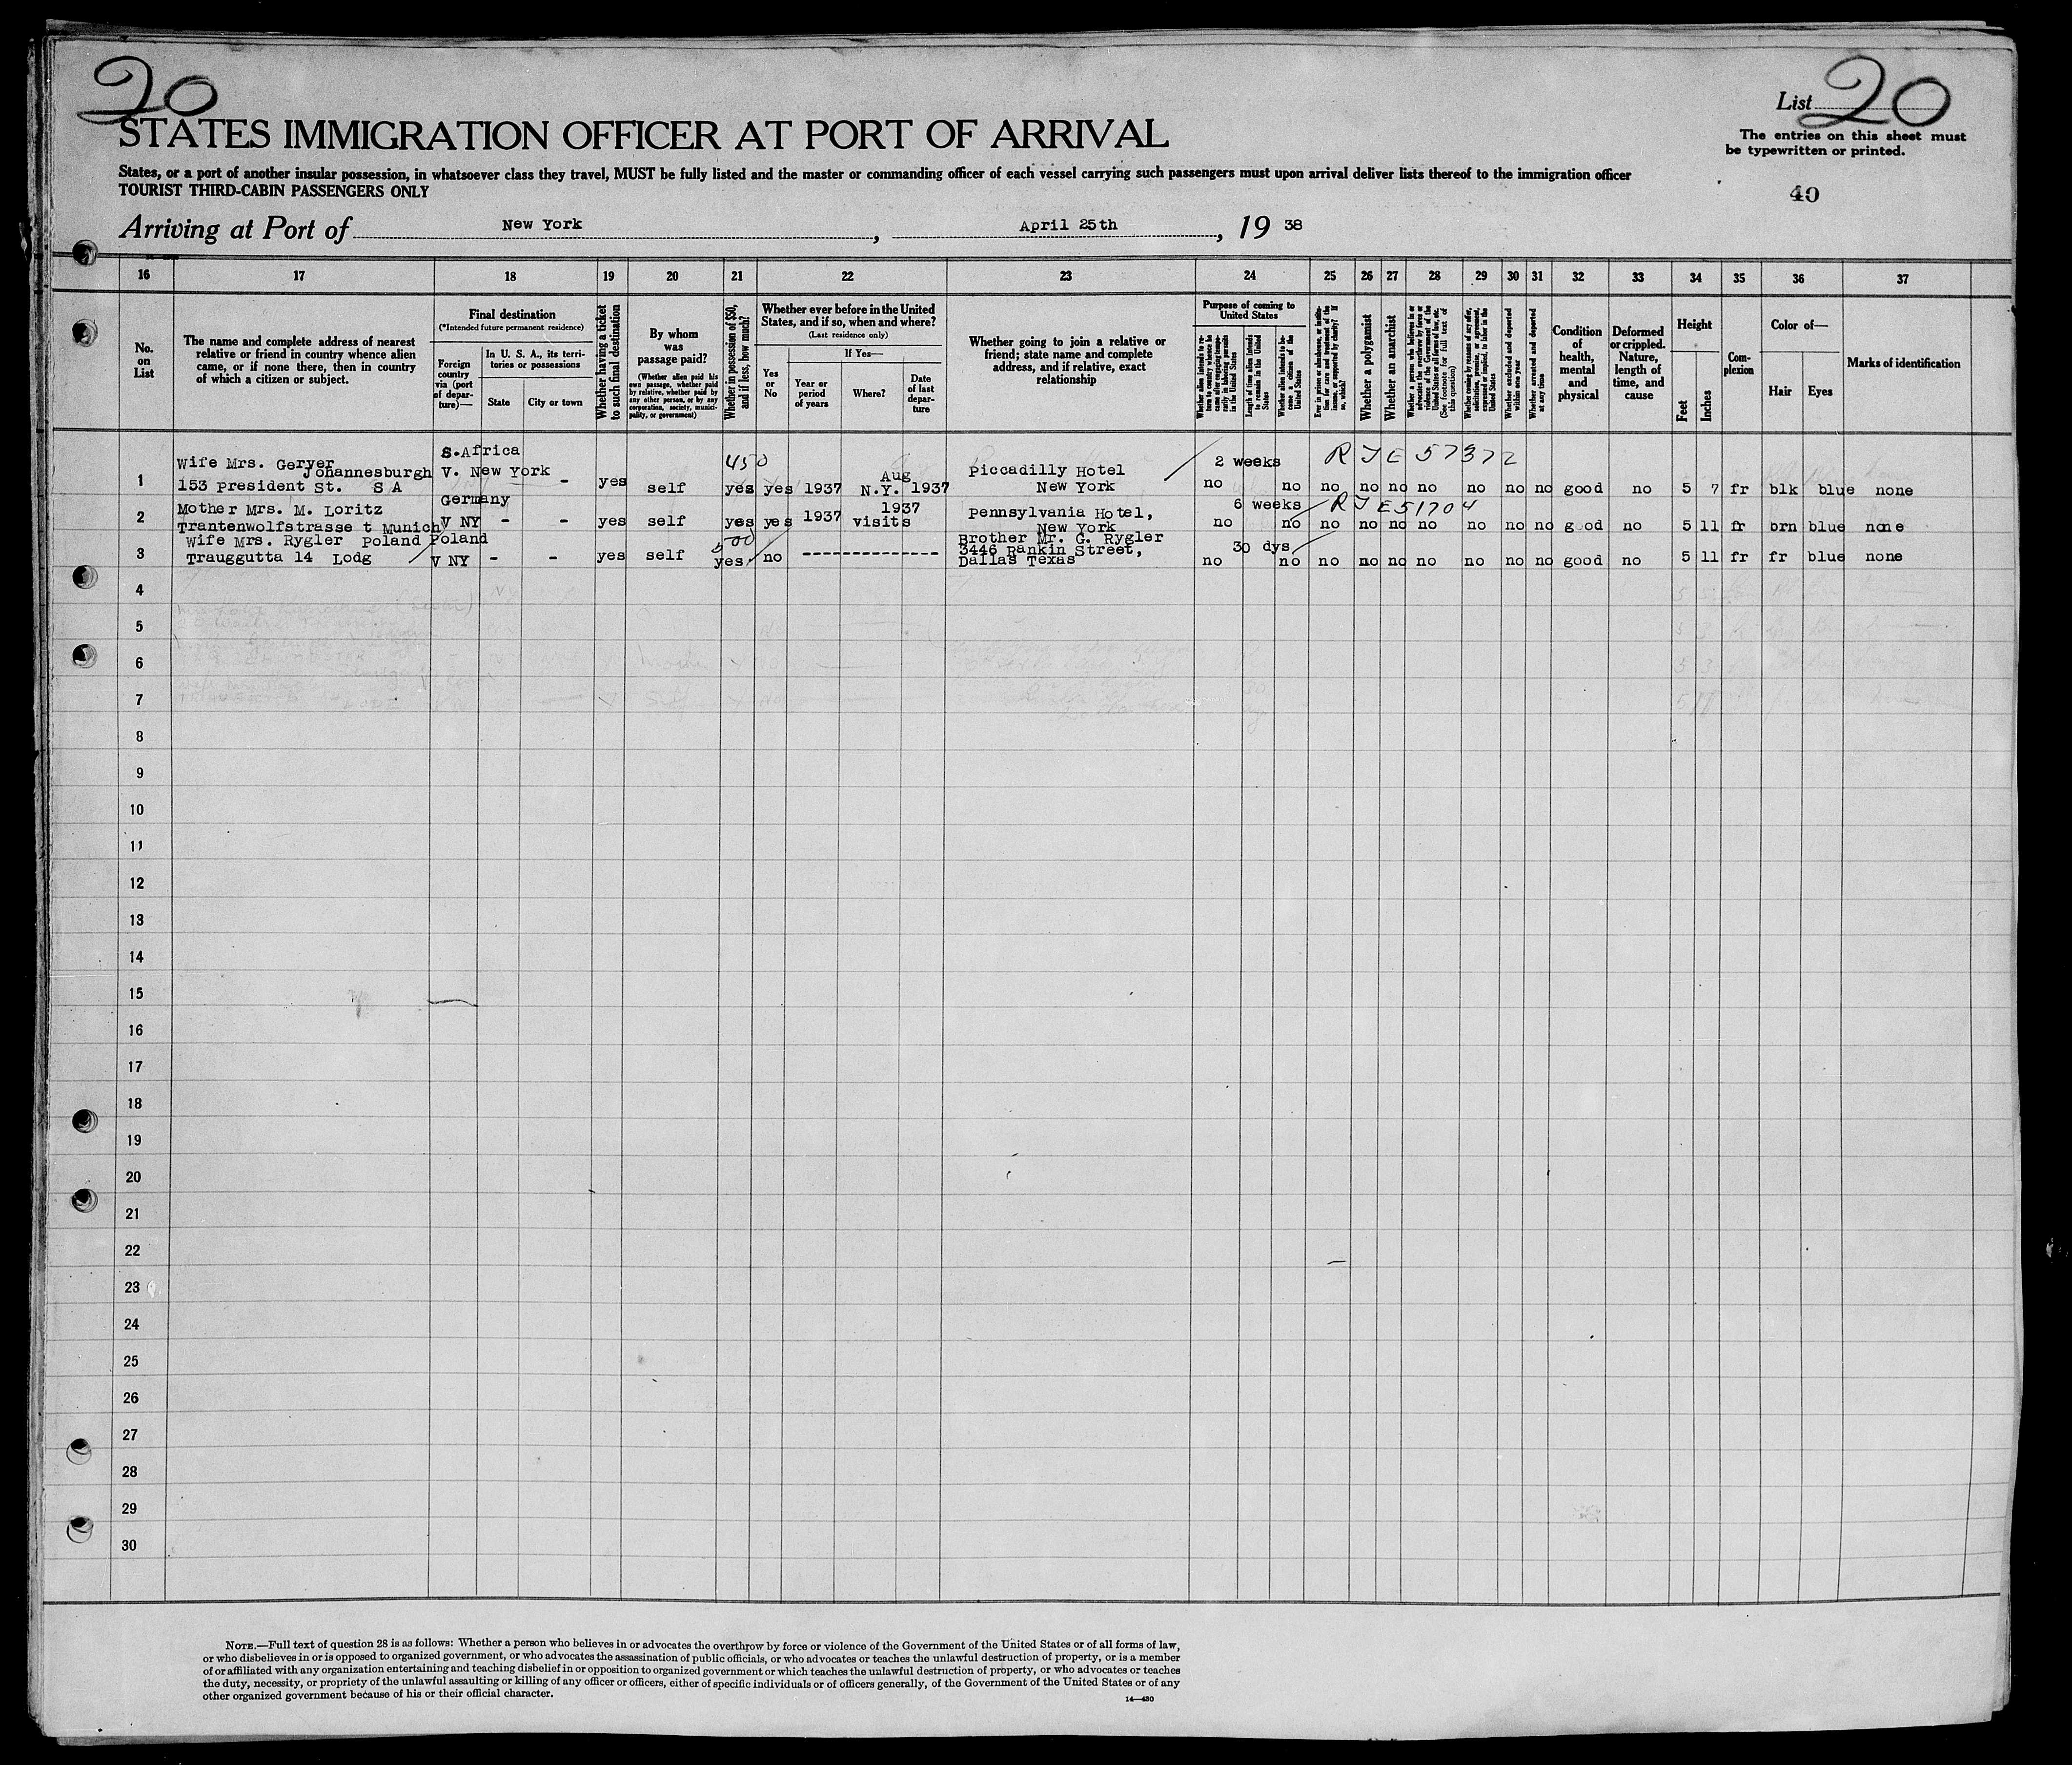 20
List 20
STATES IMMIGRATION OFFICER AT PORT OF ARRIVAL
The entries on this sheet must
be typewritten or printed.
States, or a port of another insular possession, in whatsoever class they travel, MUST be fully listed and the master or commanding officer of each vessel carrying such passengers must upon arrival deliver lists thereof to the immigration officer
TOURIST THIRD-CABIN PASSENGERS ONLY
40
Arriving at Port of New York, April 25th, 19 38
16 17 18 19 20 21 22 23 24 25 26 27 28 29 30 31 32 33 34 35 36 37
No.
on
List
The name and complete address of nearest
relative or friend in country whence alien
came, or if none there, then in country
of which a citizen or subject.
Final destination
(*Intended future permanent residence)
Foreign
country
via (port
of depar-
ture)—
In U. S. A., its terri-
tories or possessions
State
City or town
Whether having a ticket
to such final destination
By whom
was
passage paid?
(Whether alien paid his
own passage, whether paid
by relative, whether paid by
any other person, or by any
corporation, society, munici-
pality, or government)
Whether in possession of $50,
and if less, how much?
Whether ever before in the United
States, and if so, when and where?
(Last residence only)
Yes
or
No
If Yes—
Year or
period
of years
Where?
Date
of last
depar-
ture
Whether going to join a relative or
friend; state name and complete
address, and if relative, exact
relationship
Purpose of coming to
United States
Whether alien intends to re-
turn to country whence he
came after engaging tempo-
rarily in laboring pursuits
in the United States
Length of time alien intends
to remain in the United
States
Whether alien intends to be-
come a citizen of the
United States
Ever in prison or almshouse, or institu-
tion for care and treatment of the
insane, or supported by charity? If
so, which?
Whether a polygamist
Whether an anarchist
Whether a person who believes in or
advocates the overthrow by force or
violence of the Government of the
United States or all forms of law, etc.
(See footnote for full text of
this question)
Whether coming by reason of any offer,
solicitation, promise, or agreement,
expressed or implied, to labor in the
United States
Whether excluded and deported
within one year
Whether arrested and deported
at any time
Condition
of
health,
mental
and
physical
Deformed
or crippled.
Nature,
length of
time, and
cause
Height
Feet
Inches
Com-
plexion
Color of—
Hair
Eyes
Marks of identification
S.Africa
450
2 weeks RTE 57372
Wife Mrs. Geryer
Johannesburgh V. New York Aug Piccadilly Hotel
1 153 President St. S A - yes self yes yes 1937 N.Y. 1937 New York no no no no no no no no no good no 5 7 fr blk blue none
Germany
Mother Mrs. M. Loritz 1937 Pennsylvania Hotel, 6 weeks RTE 51704
2 Trantenwolfstrasse t Munich V NY - - yes self yes yes 1937 visits New York no no no no no no no no no good no 5 11 fr brn blue none
Wife Mrs. Rygler Poland Poland 500 Brother Mr. G. Rygler
3446 Rankin Street, 30 dys
3 Trauggutta 14 Lodg V NY - - yes self yes no --------------- Dallas Texas no no no no no no no no no good no 5 11 fr fr blue none
4
5
6
7
8
9
10
11
12
13
14
15
16
17
18
19
20
21
22
23
24
25
26
27
28
29
30
NOTE.—Full text of question 28 is as follows: Whether a person who believes in or advocates the overthrow by force or violence of the Government of the United States or of all forms of law,
or who disbelieves in or is opposed to organized government, or who advocates the assassination of public officials, or who advocates or teaches the unlawful destruction of property, or is a member
of or affiliated with any organization entertaining and teaching disbelief in or opposition to organized government or which teaches the unlawful destruction of property, or who advocates or teaches
the duty, necessity, or propriety of the unlawful assaulting or killing of any officer or officers, either of specific individuals or of officers generally, of the Government of the United States or of any
other organized government because of his or their official character.
14—430